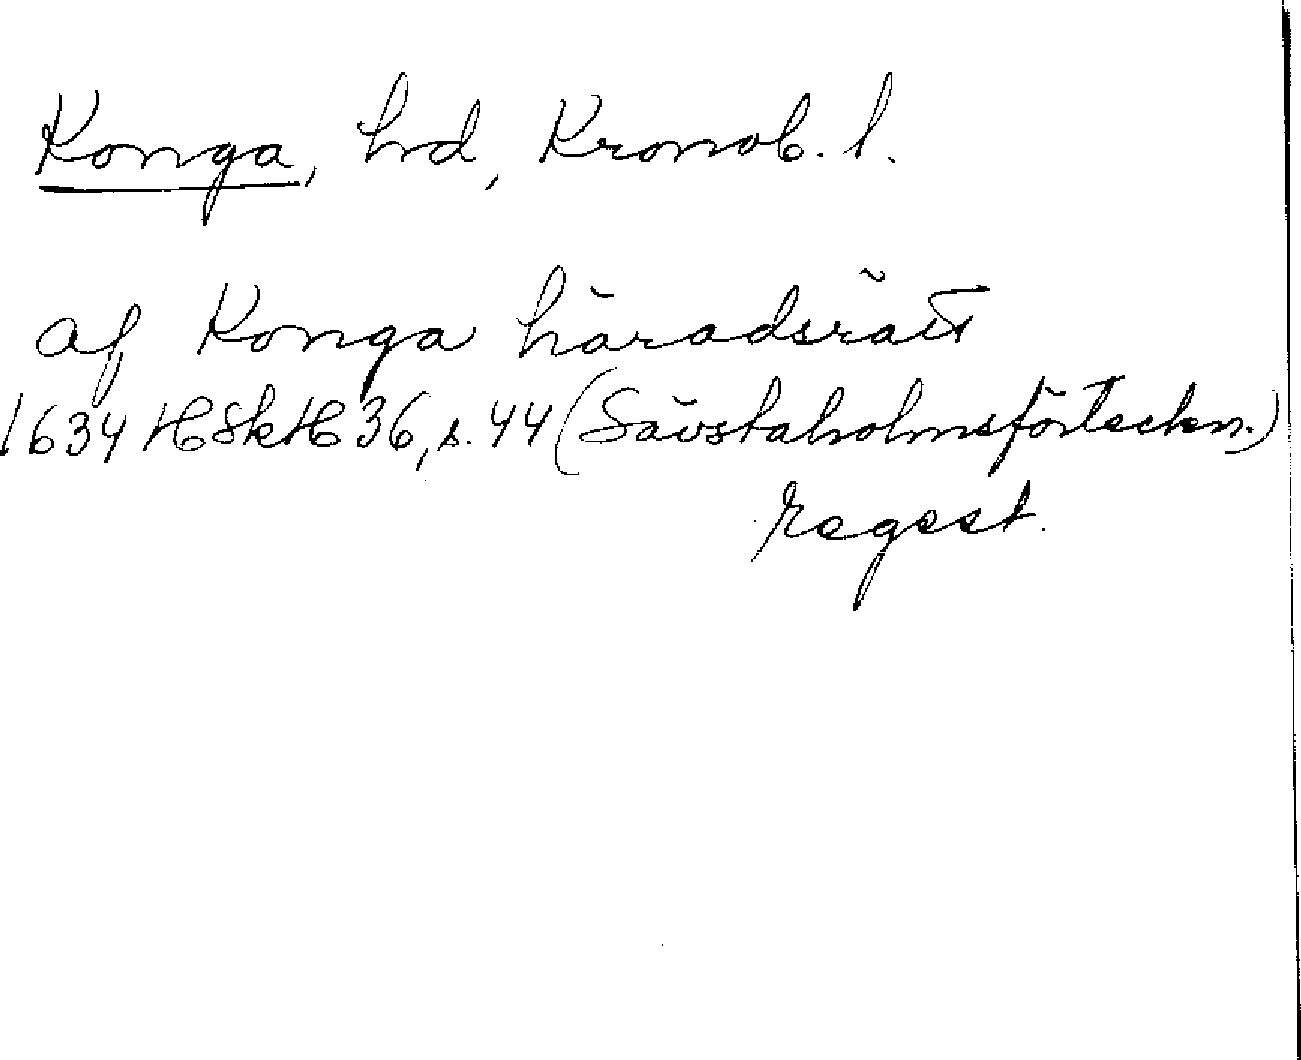 Konga, hd, Kronob. l.
af Konga häradsrätt
1634 HSkH 36, s. 44 (Sävstaholmsförteckn.)
regest.